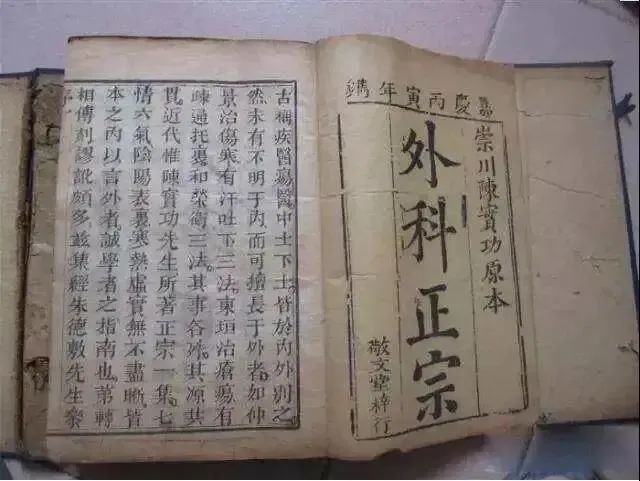 嘉慶丙寅年鐫
崇川陳實功原本
外科正宗
敬文堂梓行
古稱疾醫瘍醫中士下士皆於內外別之
然未有不明于內而可擅長于外者如仲
景治傷寒有汗吐下三法東垣治瘡瘍有
疎通托裏和榮衛三法其事各殊其源其
貫近代惟陳實功先生所著正宗一集七
情六氣陰陽表裏寒熱虛實無不盡晰皆
本之內以言外者誠學者之指南也第轉
相傳刻謬訛頗多茲集經朱德敷先生參